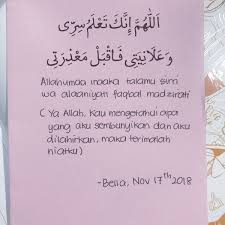 اَللّٰهُمَّ إِنَّكَ تَعْلَمُ سِرِّى
وَعَلَانِيَتِى فَاقْبَلْ مَعْذِرَتِى
Allahumaa innaka talamu sirri
wa alaaniyati faqbal madzirati
( Ya Allah, Kau mengetahui apa
yang aku sembunyikan dan aku
dilahirkan, maka terimalah
niatku )
-Bella, Nov 17th 2018